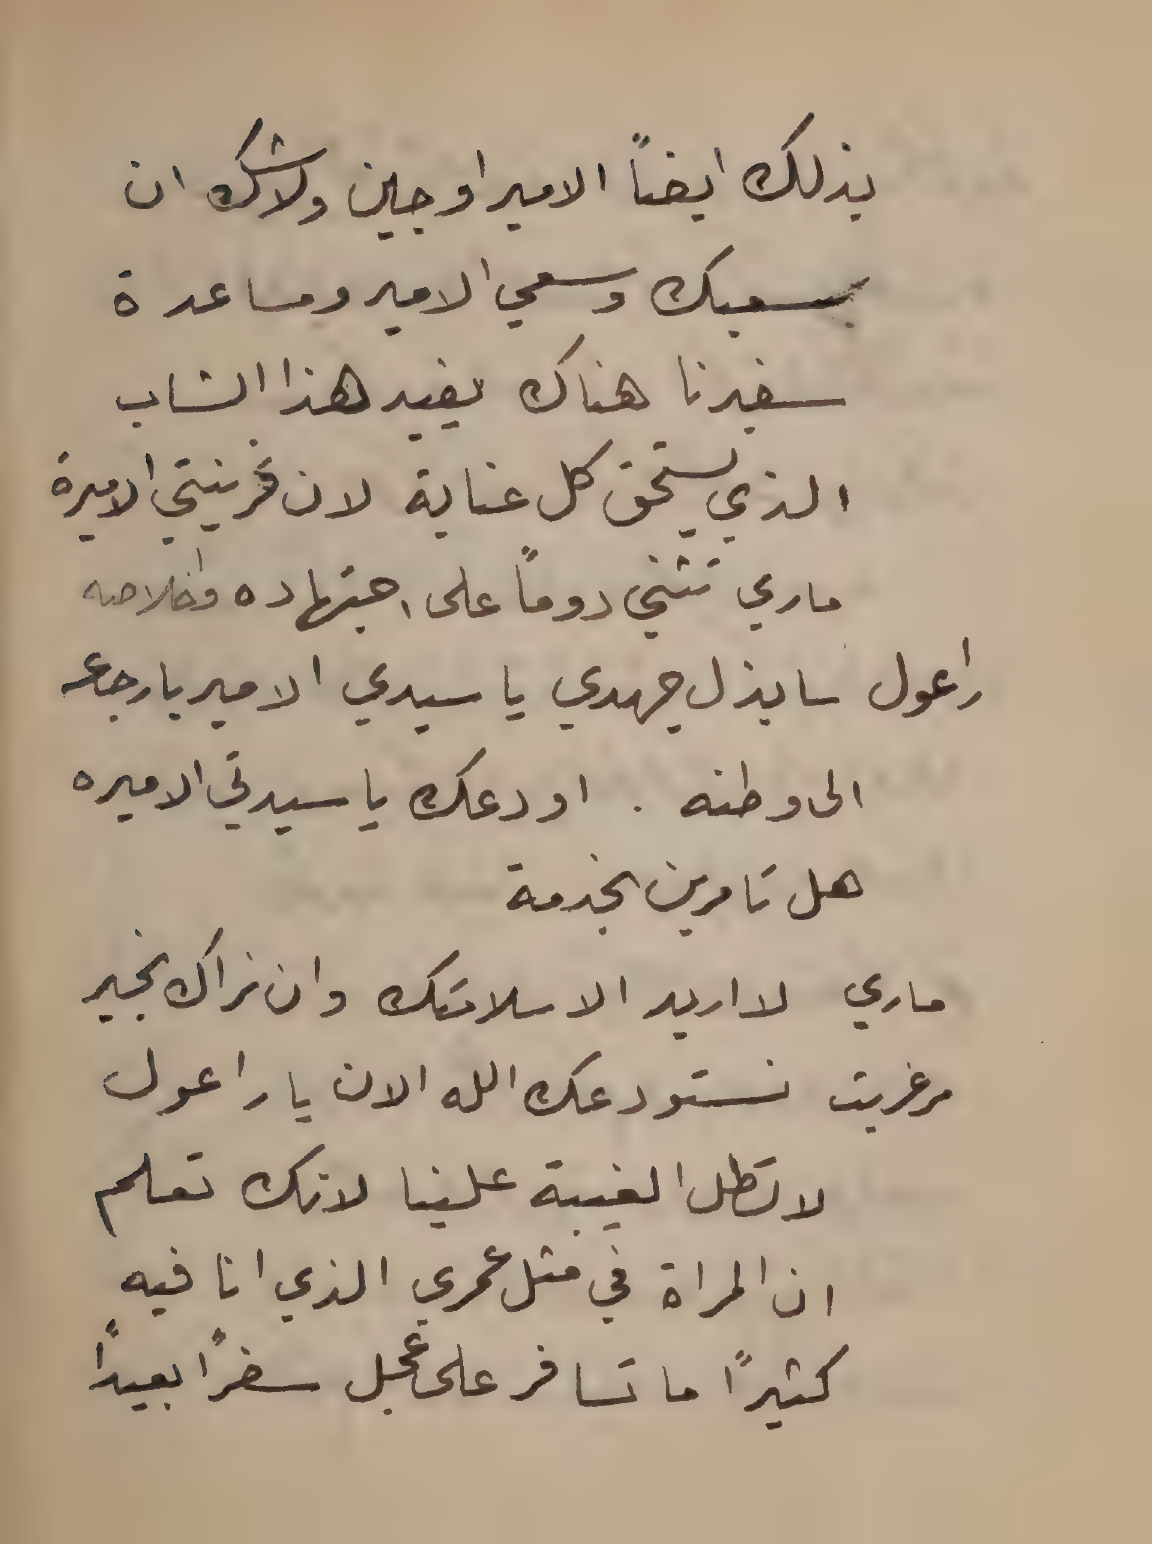 بذلك ايضاً الامير اوجين ولاشك ان
بسعيك وسعي الامير ومساعدة
سفيرنا هناك يفيد هذا الشاب
الذي يستحق كل عناية لان قرينتي الاميرة
ماري تثني دوماً على اجتهاده واخلاصه
راعول سابذل جهدي يا سيدي الامير بارجاعه
الى وطنه . اودعك يا سيدتي الاميره
هل تامرين بخدمة
ماري لا اريد الا سلامتك وان نراك بخير
مرغريت نستودعك الله الان يا راعول
لا تطل الغيبة علينا لانك تعلم
ان المراة في مثل عمري الذي انا فيه
كثيرًا ما تسافر على عجل سفرًا بعيدًا